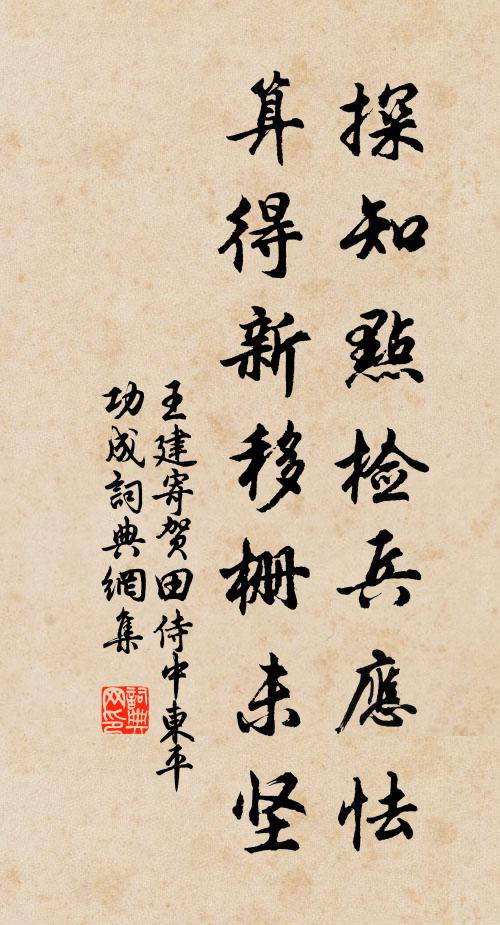 探知點检兵應怯
算得新移栅未坚
王建寄贺田侍中東平
功成詞典網集
詞典
网印